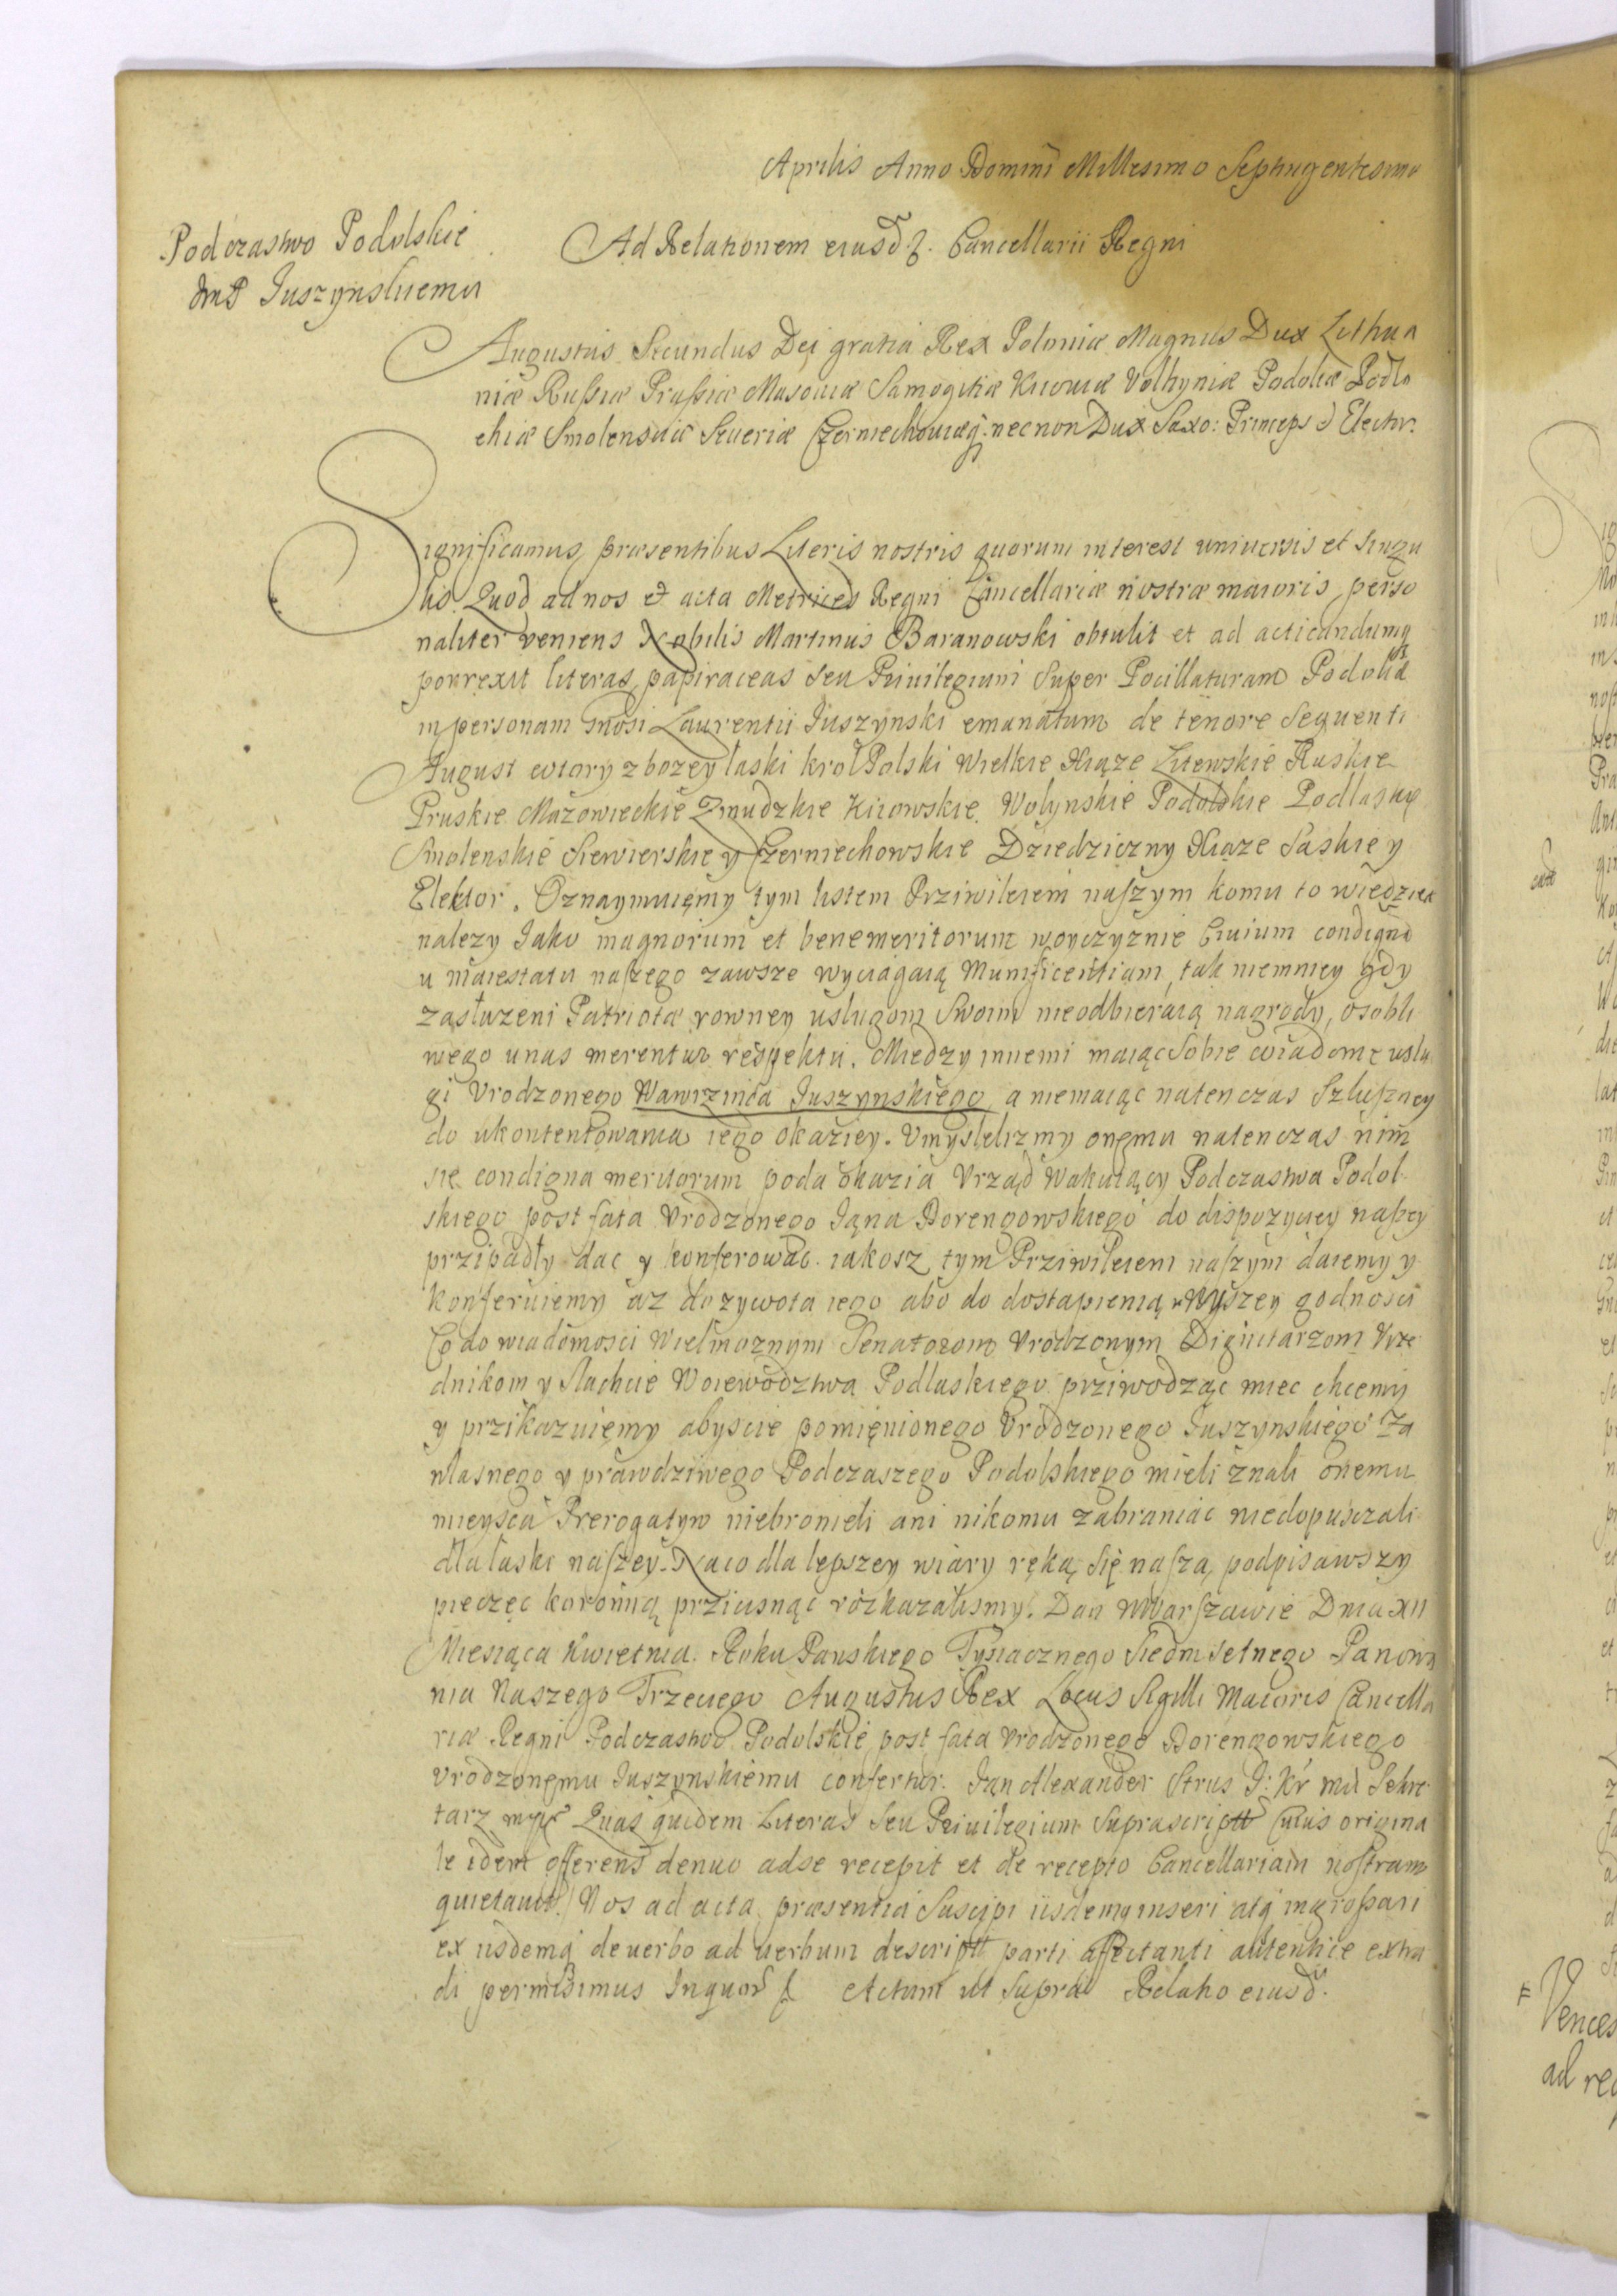 Aprilis Anno Domini Millesimo Septingentesimo
Podczastwo Podolskie
Ad Relationem eiusd. Cancellarii Regni
Juszynskiemu
Augustus Secundus Dei gratia Rex Poloniæ Magnus Dux Lithua
niæ Rußiæ Prußiæ Masoviæ Samogitiæ Kiioviæ Volhyniæ Podoliæ Podla
chiæ Smolensciæ Seueriæ Czerniechouiæq. necnon Dux Saxo: Princeps & Elector.
Significamus præsentibus Literis nostris quorum interest uniuersis et singu
lis. Quod ad nos & acta Metrices Regni Cancellariæ nostræ maioris perso
naliter veniens Nobilis Martinus Baranowski obtulit et ad acticandumq
porrexit literas papiraceas seu Priuilegium Super Pocillaturam Podoliæ
in personam Gnosi Laurentii Juszynski emanatum de tenore sequenti
August wtory z bozey łaski krol Polski Wielkie Xiąze Litewskie Ruskie
Pruskie Mazowieckie Zmudzkie Kiiowskie Wolynskie Podolskie Podlaskie
Smolenskie Siewierskie y Czerniechowskie Dziedziczny Xiąze Saskie y
Elektor. Oznaymuięmy tym listem Prziwileiem naszym komu to wiedziec
nalezy Jako magnorum et benemeritorum woyczyznie Ciuium condigno
u maiestatu naszego zawsze wyciagaią Munificentiam, tak niemniey gdy
zasłuzeni Patriotæ rowney usługom Swoim nieodbieraią nagrody, osobli
wego unas merentur respektu. Miedzy innemi maiąc Sobie wiadome usłu
gi Vrodzonego Wawrzinca Juszynskiego a niemaiąc natenczas Szluszney
do ukontentowania iego okaziey. Vmyslelizmy onęmu natenczas nim
się condigna meritorum poda okazia Vrząd Wakuiący Podczastwa Podol
skiego post fata Vrodzonego Jąna Dorengowskiego do dispozyciey naszey
prziṕadły dac y konferowac. iakosz tym Prziwileiem naszym daiemy y
konferuiemy az do zywota iego abo do dostąpienią wyszey godnosci
Co do wiadomosci Wielmoznym Senatorom Vrodzonym Dignitarzom Vrzę
dnikom y Slachcie Woiewodztwa Podlaskiego prziwodząc miec chcemy
y przikazuięmy abyscie pomięnionego Vrodzonego Juszynskiego za
własnego y prawdziwego Podczaszego Podolskiego mieli znali onemu
mieysca Prerogatyw niebronieli ani nikomu zabraniac niedopuszczali
dla łaski naszey. Naco dla lepszey wiary ręką się naszą podpisawszy
pieczęc koronną przicisnąc rozkazalismy. Dan w Warszawie Dnia XII
Miesiąca Kwietnia. Roku Panskiego Tysiacznego Siedmsetnego Panowa
nia Naszego Trzeciego Augustus Rex Locus Sigilli Maioris Cancella
riæ Regni Podczastwo Podolskie post fata Vrodzonego Dorengowskiego
Vrodzonemu Juszynskiemu confertur. Jan Alexander Strus J: Kr mci Sekre
tarz Quas quidem Literas Seu Priuilegium Suprascriptt Cuius origina
le idem offerens denuo adse recepit et de recepto Cancellariam nostram
quietauit. Nos ad acta præsentia Suscipi iisdemq inseri atq ingroßari
ex iisdemq de uerbo ad uerbum descriptt parti affectanti autentice extra
di permißimus Inquor f. Actum ut Supra Relatio eiusd.